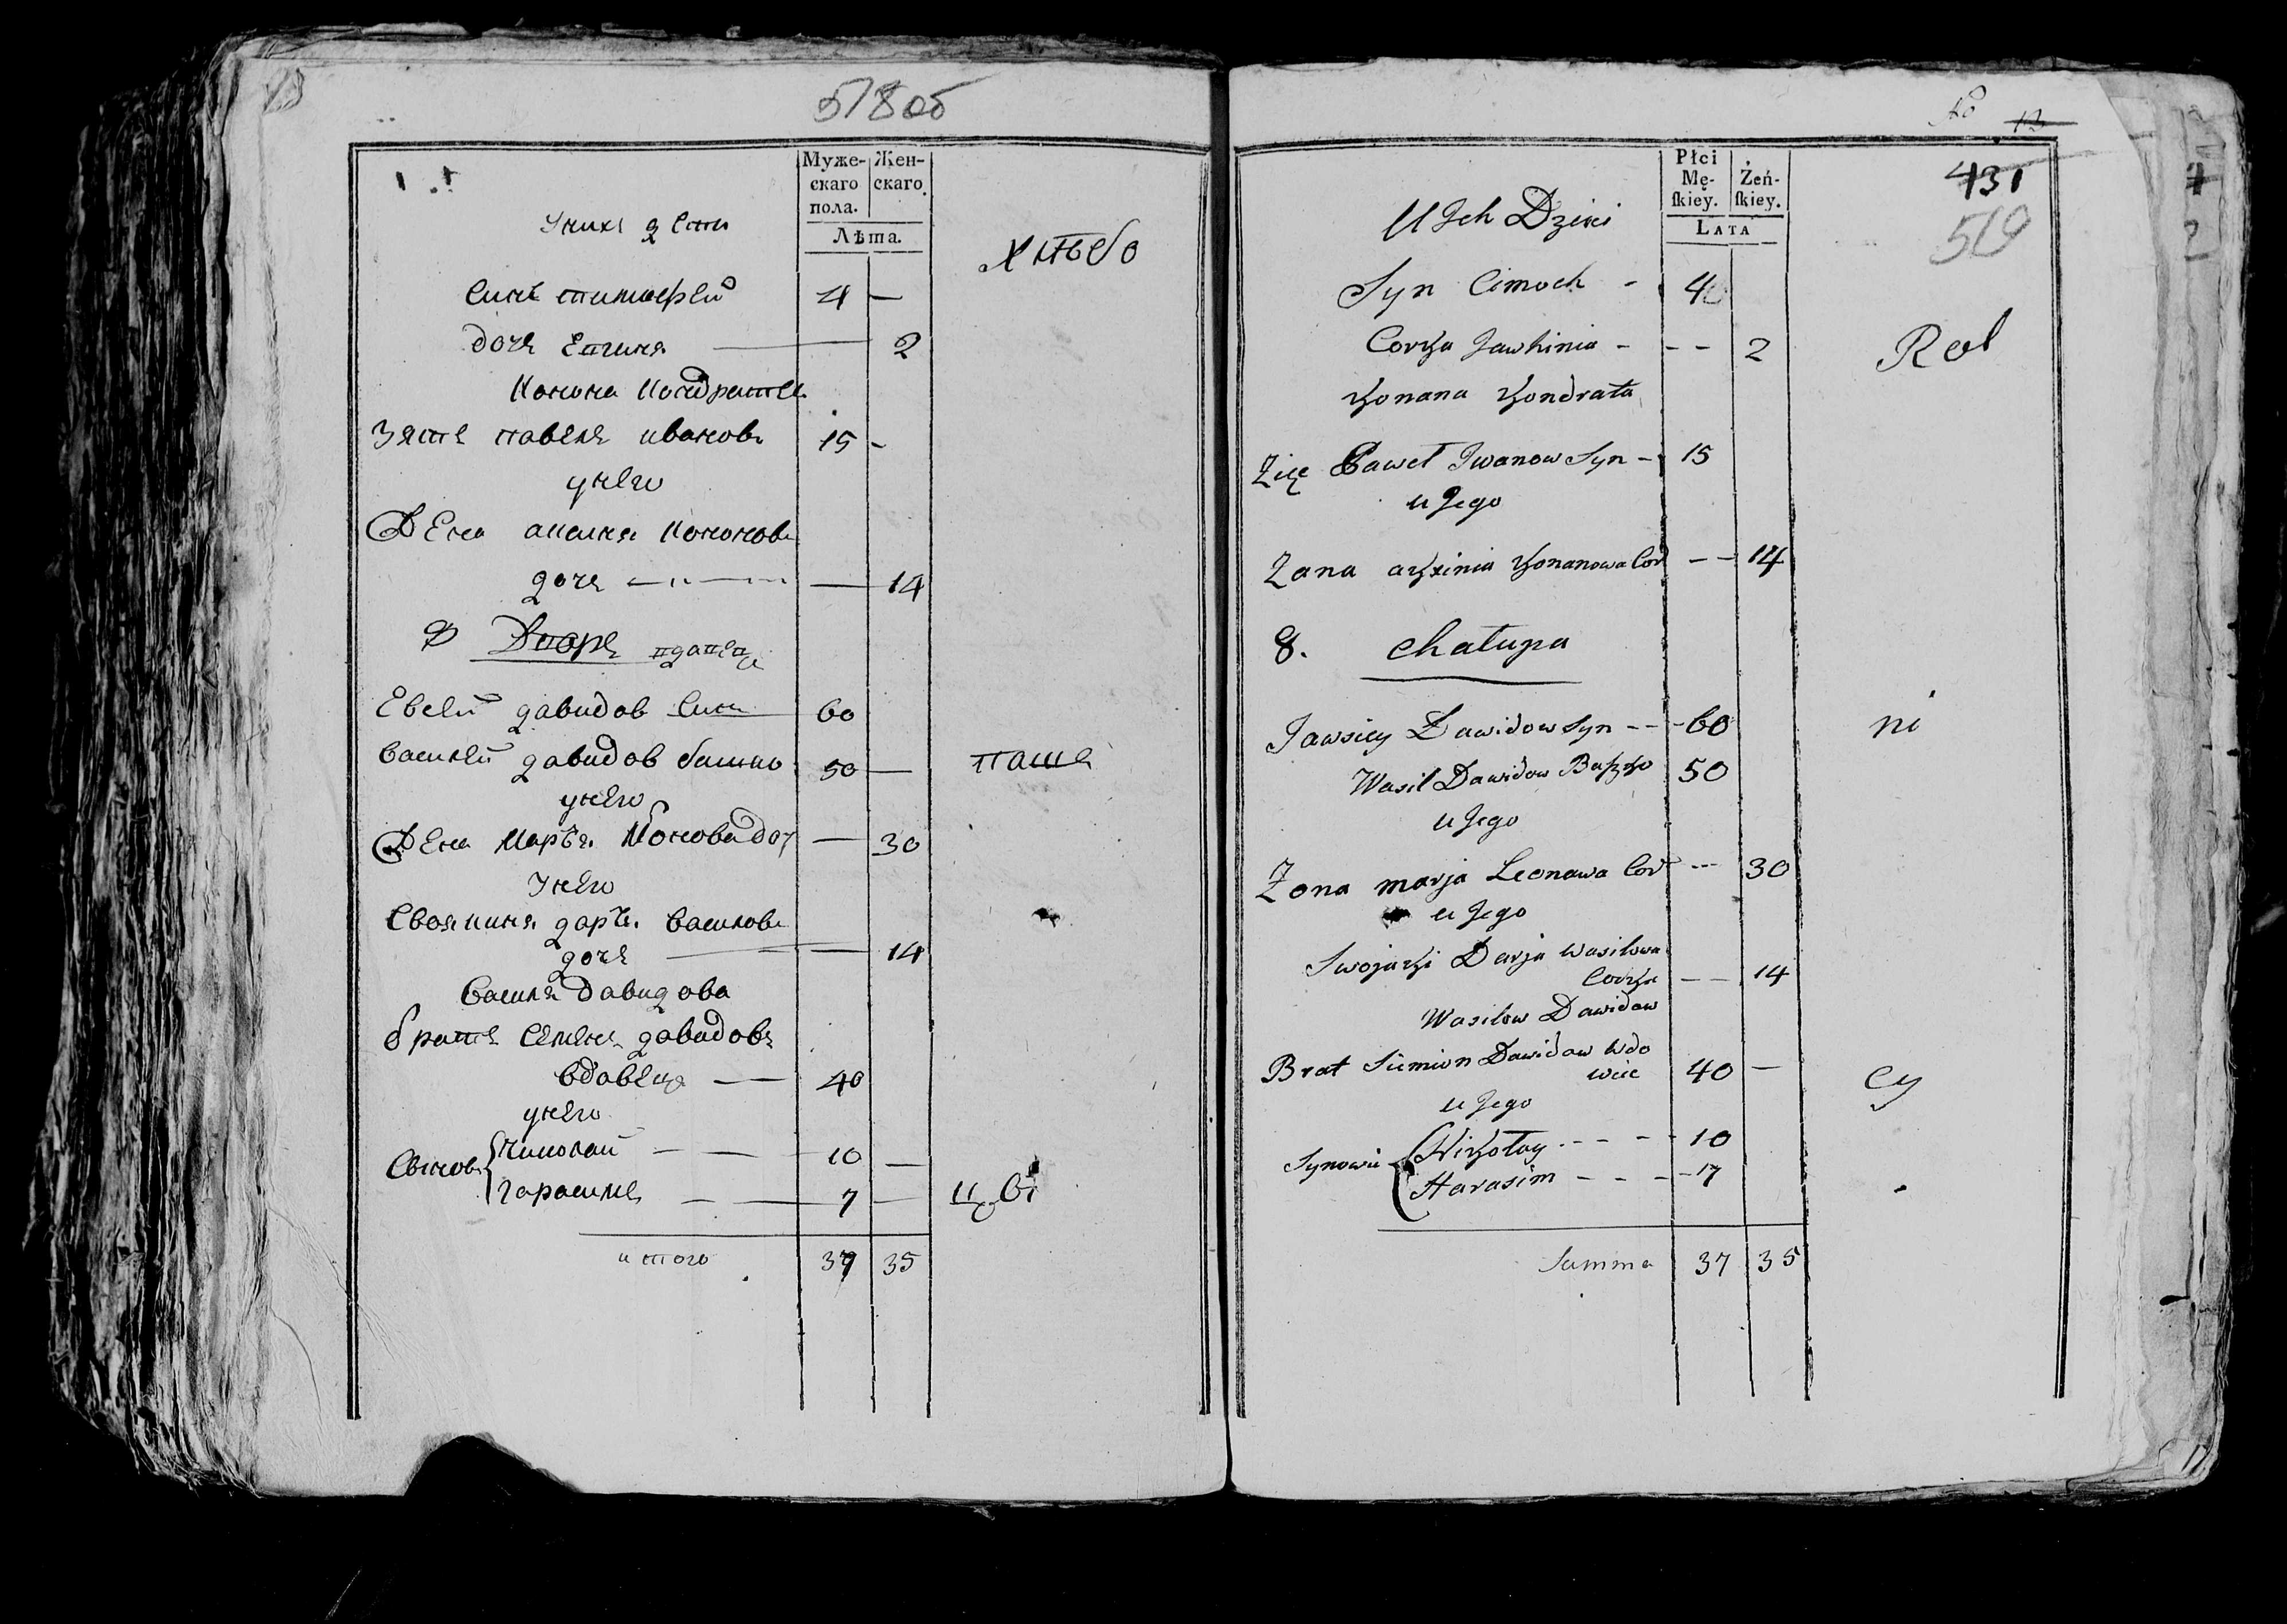 518об
Муже-
скаго
пола.
Жен-
скаго.
Лѣта.
у нихъ дети
хлѣбо
синъ тимофей 4 —
дочь Евгиня — 2
Конона Кондратьи
Зять павелъ ивановъ 15 -
у него
Жена аксиня Кононова
дочь — 14
8 Дворъ
Евсей давидов Синъ 60
Василей давидов башко 50 —
паше
у него
Жена Марья дoч — 30
У него
Своякиня дарья Василова
дочь — 14
Василя Давидова
братъ Семенъ давидовъ
вдовецъ — 40
у него
Сынови
Николай — — 10 —
гарасимъ — — 7 —
цы
итого 37 35
13
431
519
Płci
Mę-
ſkiey.
Żeń-
ſkiey.
LATA
U Jch Dzieci
Syn Cimoch - 4
Corka Jawhinia - - - 2
Rol
Konana Kondrata
Zięc Paweł Jwanow Syn - 15
u Jego
Zana aksinia Konanowa Cor - - 14
8. chałupa
Jawsiey Dawidow Syn - - - 60
ni
Wasil Dawidow Baszko 50
u Jego
Zona marja Leonawa Cor --- 30
u Jego
Swojaki Darja Wasilowa
Corka — — 14
Wasilow Dawidow
Brat Siemion Dawidow Wdo
wiec 40 —
cy
u Jego
Synowie
Nikołay - - - - 10
Harasim - - - - 7
Summa 37 35